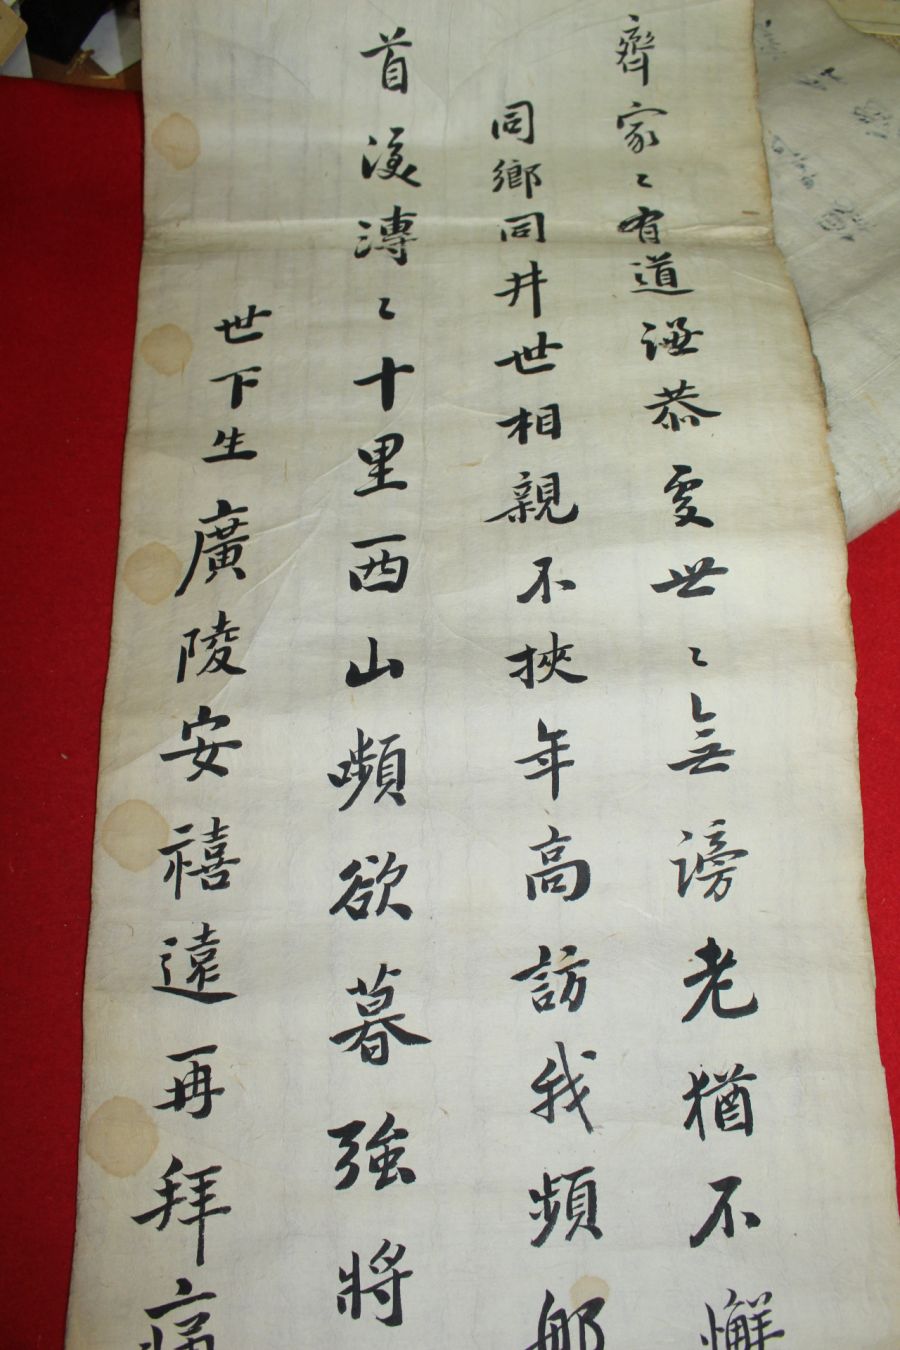 齊家〻有道謙恭處世〻無謗老猶不懈
同鄉同井世相親不挾年高訪我頻那
首漙〻十里西山嚬欲暮強將
世下生廣陵安禧遠再拜痛